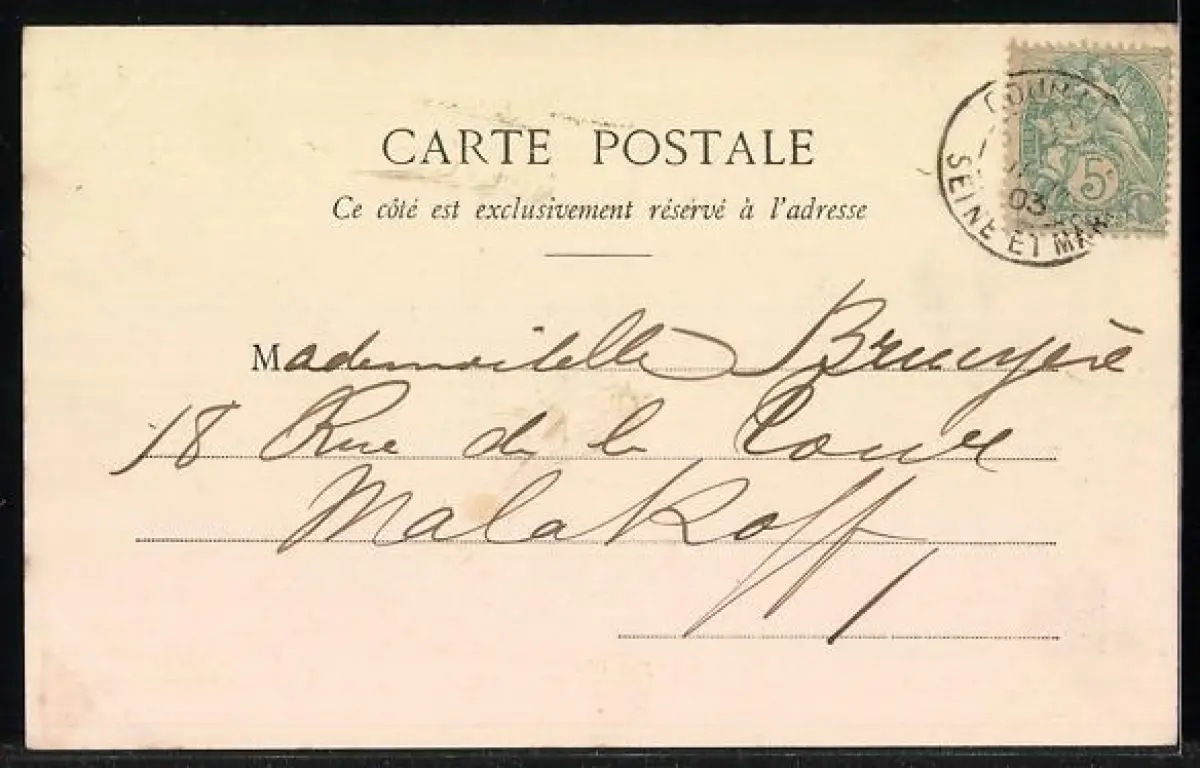 CARTE POSTALE
Ce côté est exclusivement réservé à l'adresse
5c
03
SEINE ET MAR
Mademoiselle Bruyère
18 Rue de la Tour
Malakoff